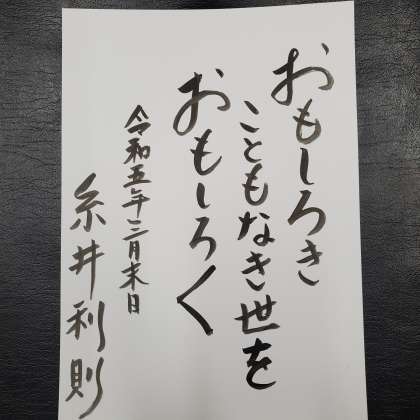 おもしろき
こともなき世を
おもしろく
令和五年三月末日
糸井利則